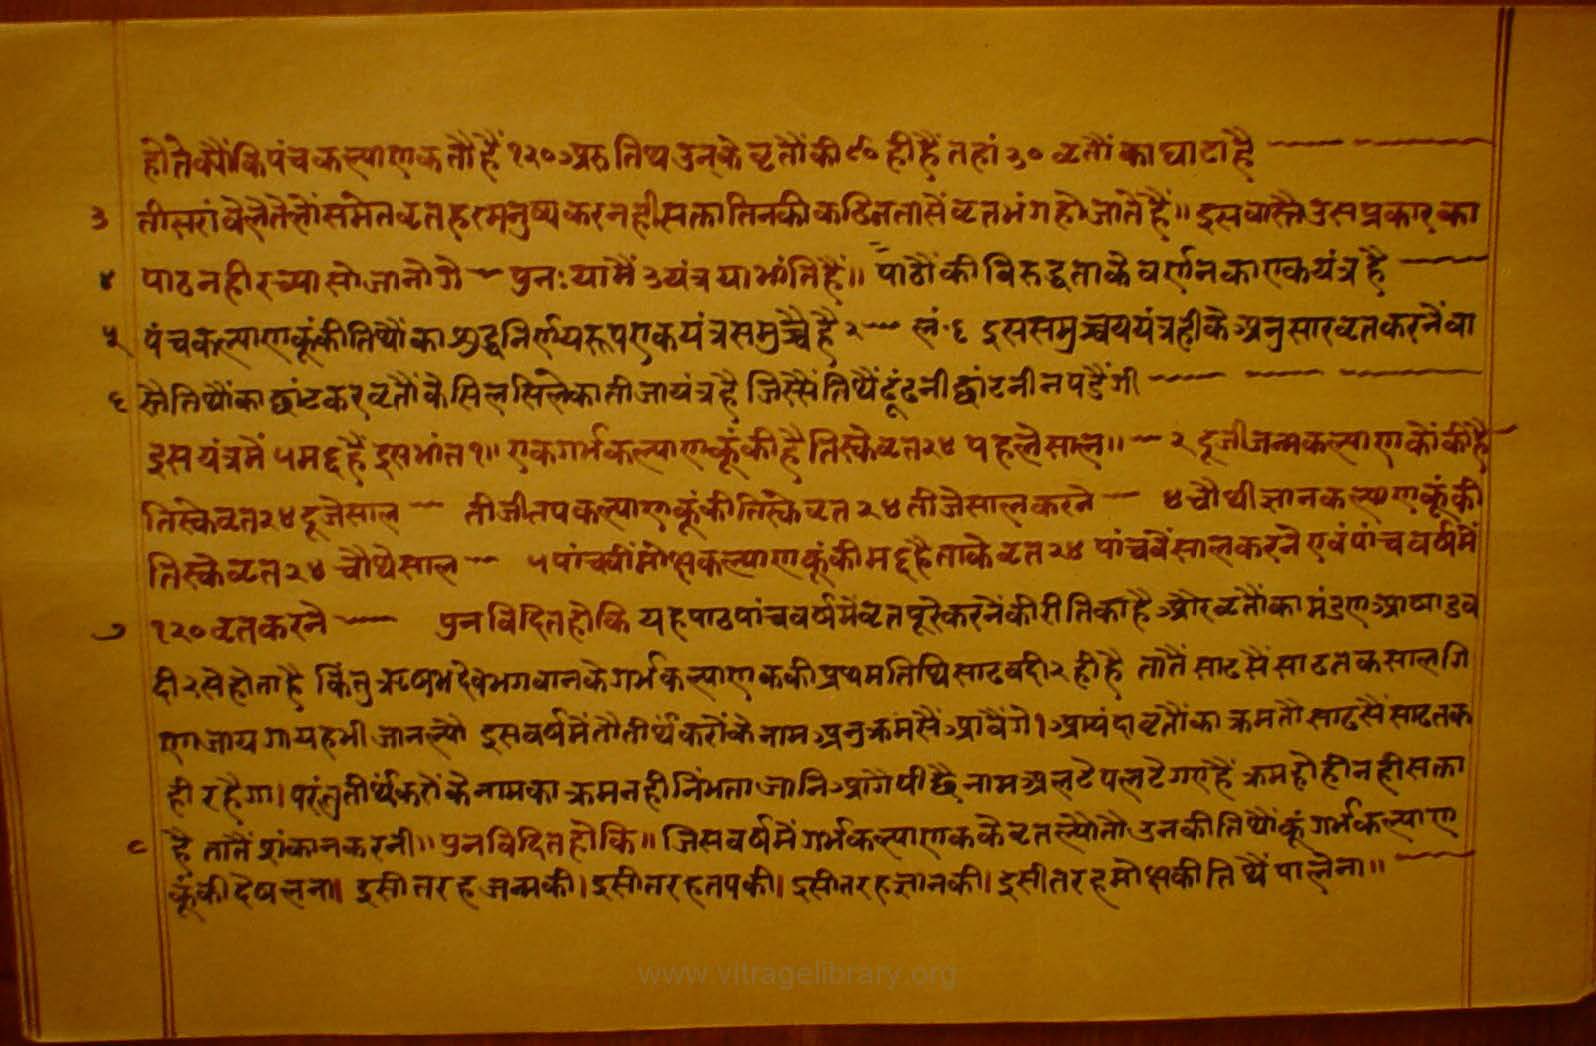 होते क्योंकि पंचकल्याणक तौ हैं १२० अरु तिथ उनके व्रतों की ९० ही हैं तहां ३० व्रतौं का घाटा है
३ तीसरां वेले तेलों समेत व्रत हर मनुष्य कर नही सक्ता तिनकी कठिनता सें व्रत भंग हो जाते हैं॥ इस वास्तै उस प्रकार का
४ पाठ नही रच्या सो जानोगे पुनः या मैं ३ यंत्र या भांति हैं॥ पाठौं की विरुद्धता के वर्णन का एक यंत्र है
५ पंचकल्याणकूं की तिथ्यौं का शुद्ध निर्णय रूप एक यंत्र समुच्चै है २ नं॰६ इस समुच्चय यंत्र ही के अनुसार व्रत करनें वा
६ स्तै तिथौं का छांट कर व्रतौं के सिलसिले का तीजा यंत्र है जिस्सैं तिथैं ढूंढनी छांटनी न पडैंगी
इस यंत्र में ५ मद्द हैं इस भांत १॥ एक गर्भकल्याणकूं की है तिस्के व्रत २४ पहले साल॥ २ दूजी जन्मकल्याणकों की है
तिस्के व्रत २४ दूजे साल तीजी तपकल्याणकूं की तिस्के व्रत २४ तीजे साल करने ४ चौथी ज्ञानकल्याणकूं की
तिस्के व्रत २४ चौथे साल ५ पांच्वीं मोक्षकल्याणकूं की मद्द है ताके व्रत २४ पांचवें साल करने एवं पांच वर्ष में
७ १२० व्रत करने पुन विदित हो कि यह पाठ पांच वर्ष में व्रत पूरे करनें की रीति का है और व्रतौं का मंडण आषाड व
दी २ से होता है किंतु ऋषभदेव भगवान के गर्भकल्याणक की प्रथम तिथि साढ वदी २ ही है तातैं साढ सैं साढ तक साल गि
णा जायगा यह भी जान ल्यौ इस वर्ष में तौ तीर्थंकरों के नाम अनुक्रम सैं आवैंगे। आयंदा व्रतौं का क्रम तौ साढ सैं साढ तक
ही रहैगा। परंतु तीर्थंकरों के नाम का क्रम नही निंभता जानि आगै पीछै नाम अलटे पलटे गए हैं क्रम हो ही नही सक्ता
८ है तातैं शंका न करनी॥ पुन विदित हो कि॥ जिस वर्ष में गर्भकल्याणक के व्रत ल्यौ तौ उनकी तिथौं कूं गर्भकल्याण
कूं की देष लना। इसी तरह जन्म की। इसी तरह तप की। इसी तरह ज्ञान की। इसी तरह मोक्ष की तिथैं पा लेना॥
www.vitragelibrary.org